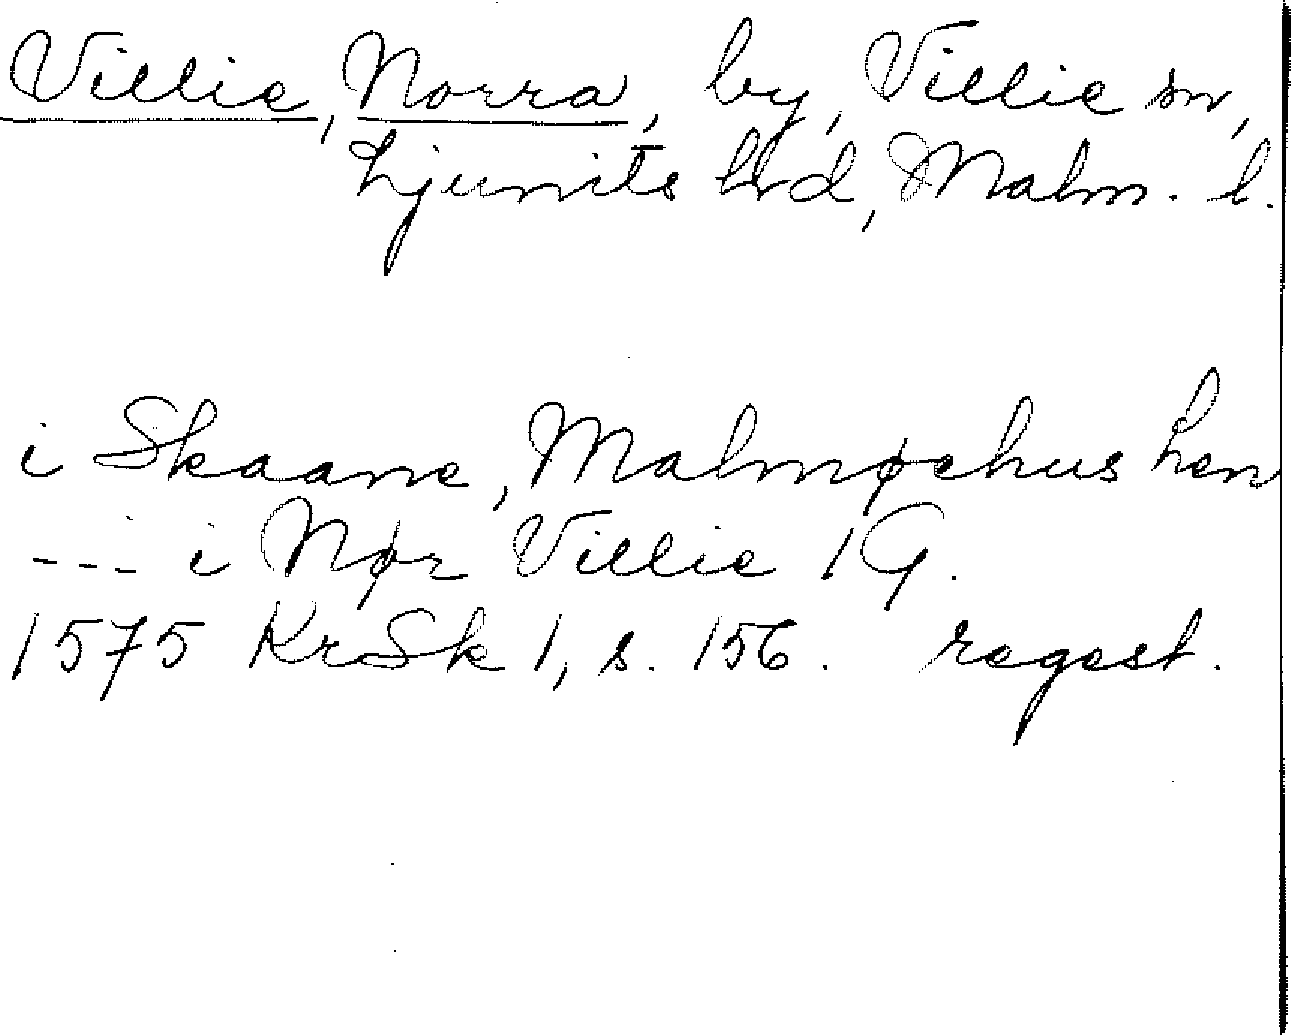 Villie, Norra, by, Villie sn,
Ljunits hrd, Malm. l.
i Skaane, Malmøehus Len
--- i Nør Villie 1 G.
1575 KrSk 1, s. 156. regest.